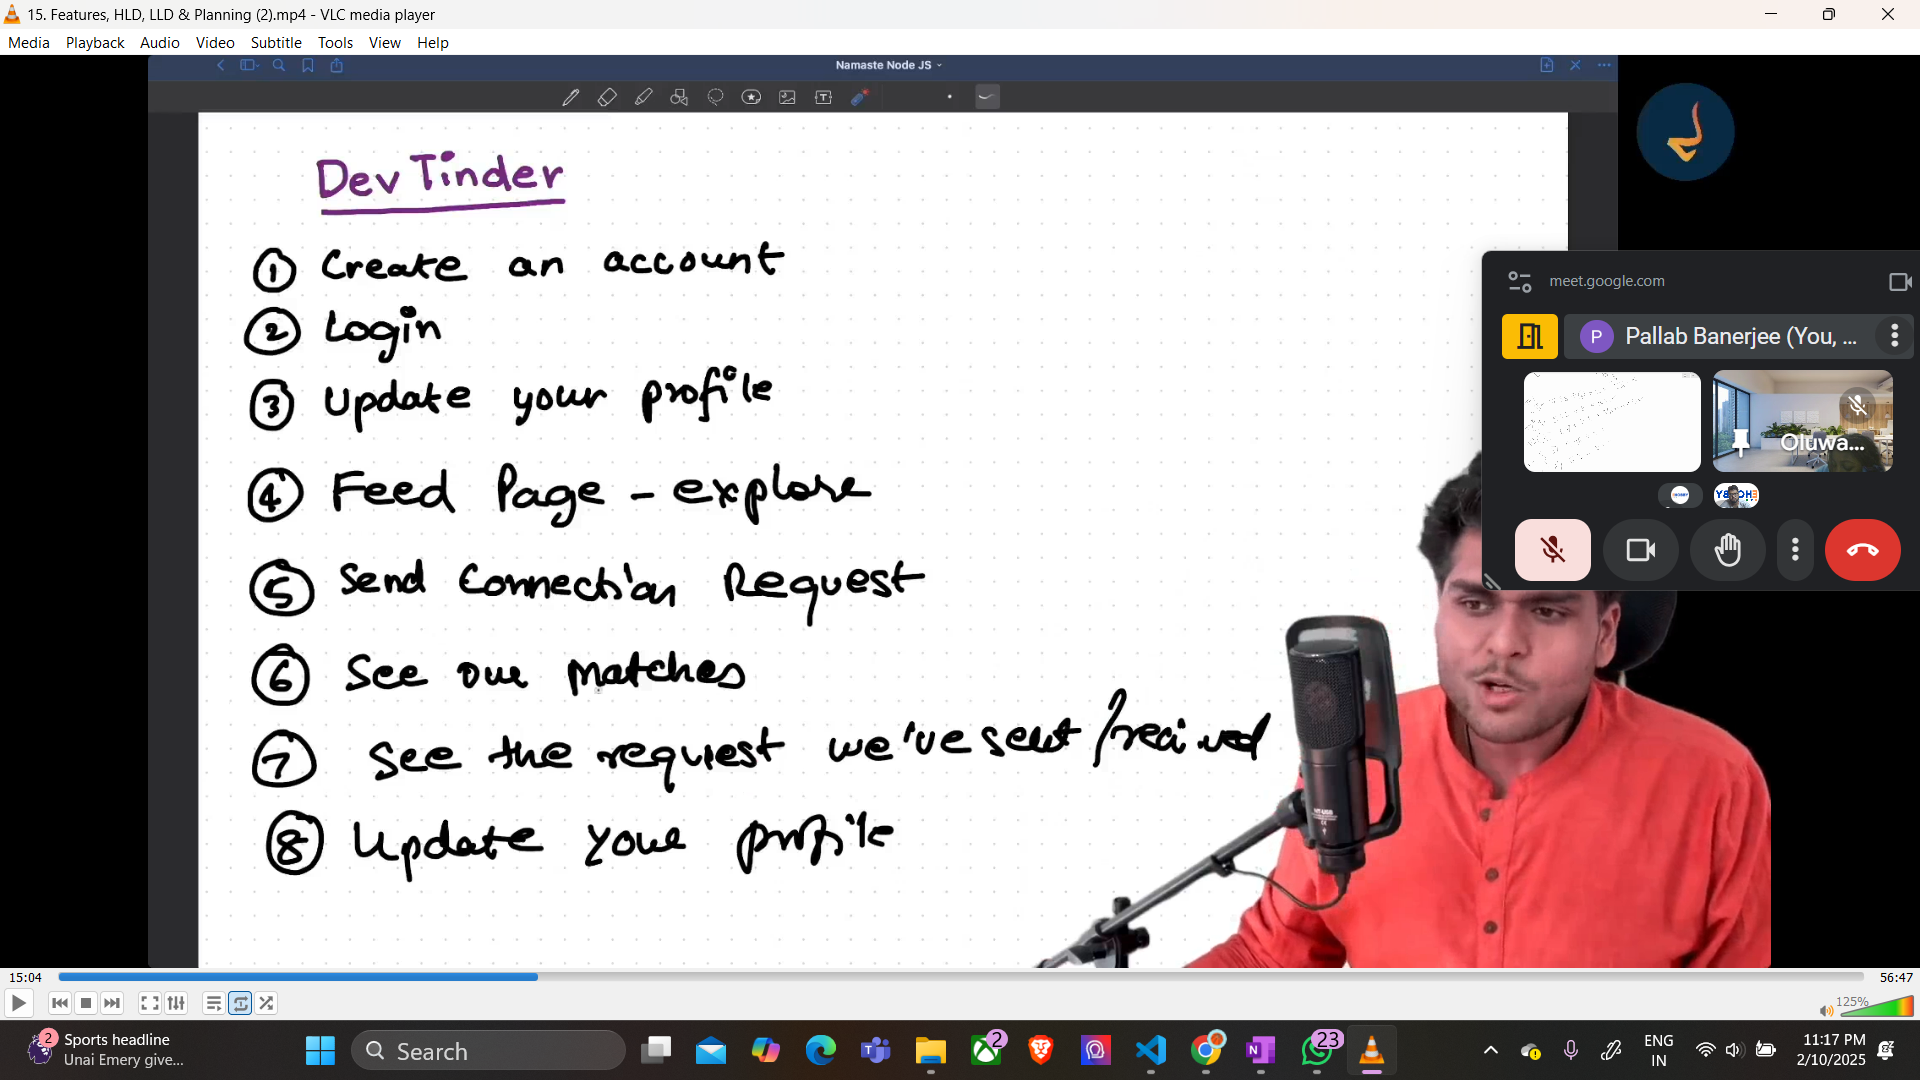 15. Features, HLD, LLD & Planning (2).mp4 - VLC media player
Media Playback Audio Video Subtitle Tools View Help
Namaste Node JS
Dev Tinder
1 Create an account
2 Login
3 Update your profile
4 Feed Page - explore
5 Send Connection Request
6 See our matches
7 See the request we've sent / recived
8 Update your profile
meet.google.com
P Pallab Banerjee (You, ...
Oluwa...
15:04
56:47
125%
2 Sports headline
Unai Emery give...
Search
2
23
ENG
IN
11:17 PM
2/10/2025